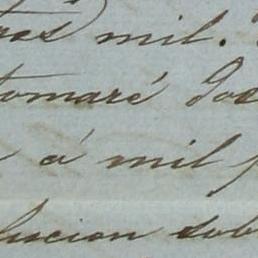 tras mil.
tomaré dos
á mil
lucion sob